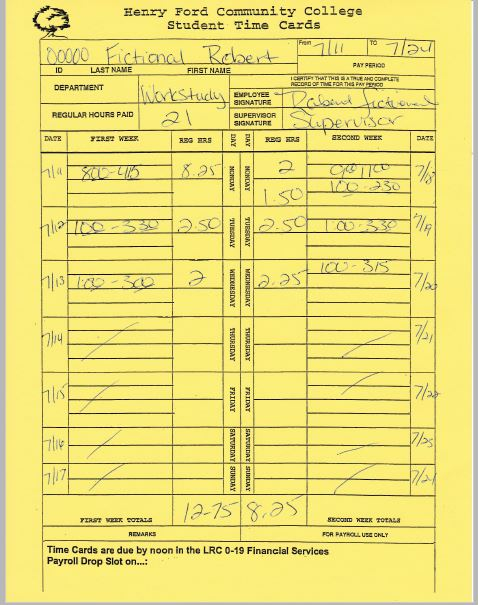 Henry Ford Community College
Student Time Cards
00000 Fictional Robert
From 7/11 TO 7/24
ID LAST NAME FIRST NAME
PAY PERIOD
DEPARTMENT Workstudy
EMPLOYEE SIGNATURE
I CERTIFY THAT THIS IS A TRUE AND COMPLETE
RECORD OF TIME FOR THIS PAY PERIOD
REGULAR HOURS PAID 21
SUPERVISOR SIGNATURE Supervisor
DATE FIRST WEEK REG HRS DAY DAY REG HRS SECOND WEEK DATE
7/11 800-415 8.25 MONDAY MONDAY 2 7/18
1.50 100-230
7/12 100-330 2.50 TUESDAY TUESDAY 2.50 1:00-330 7/19
7/13 1:00-300 2 WEDNESDAY WEDNESDAY 2.25 100-315 7/20
7/14 THURSDAY THURSDAY 7/21
7/15 FRIDAY FRIDAY 7/22
7/16 SATURDAY SATURDAY
7/17 SUNDAY SUNDAY
FIRST WEEK TOTALS 12-75 8.25 SECOND WEEK TOTALS
REMARKS FOR PAYROLL USE ONLY
Time Cards are due by noon in the LRC 0-19 Financial Services
Payroll Drop Slot on...: